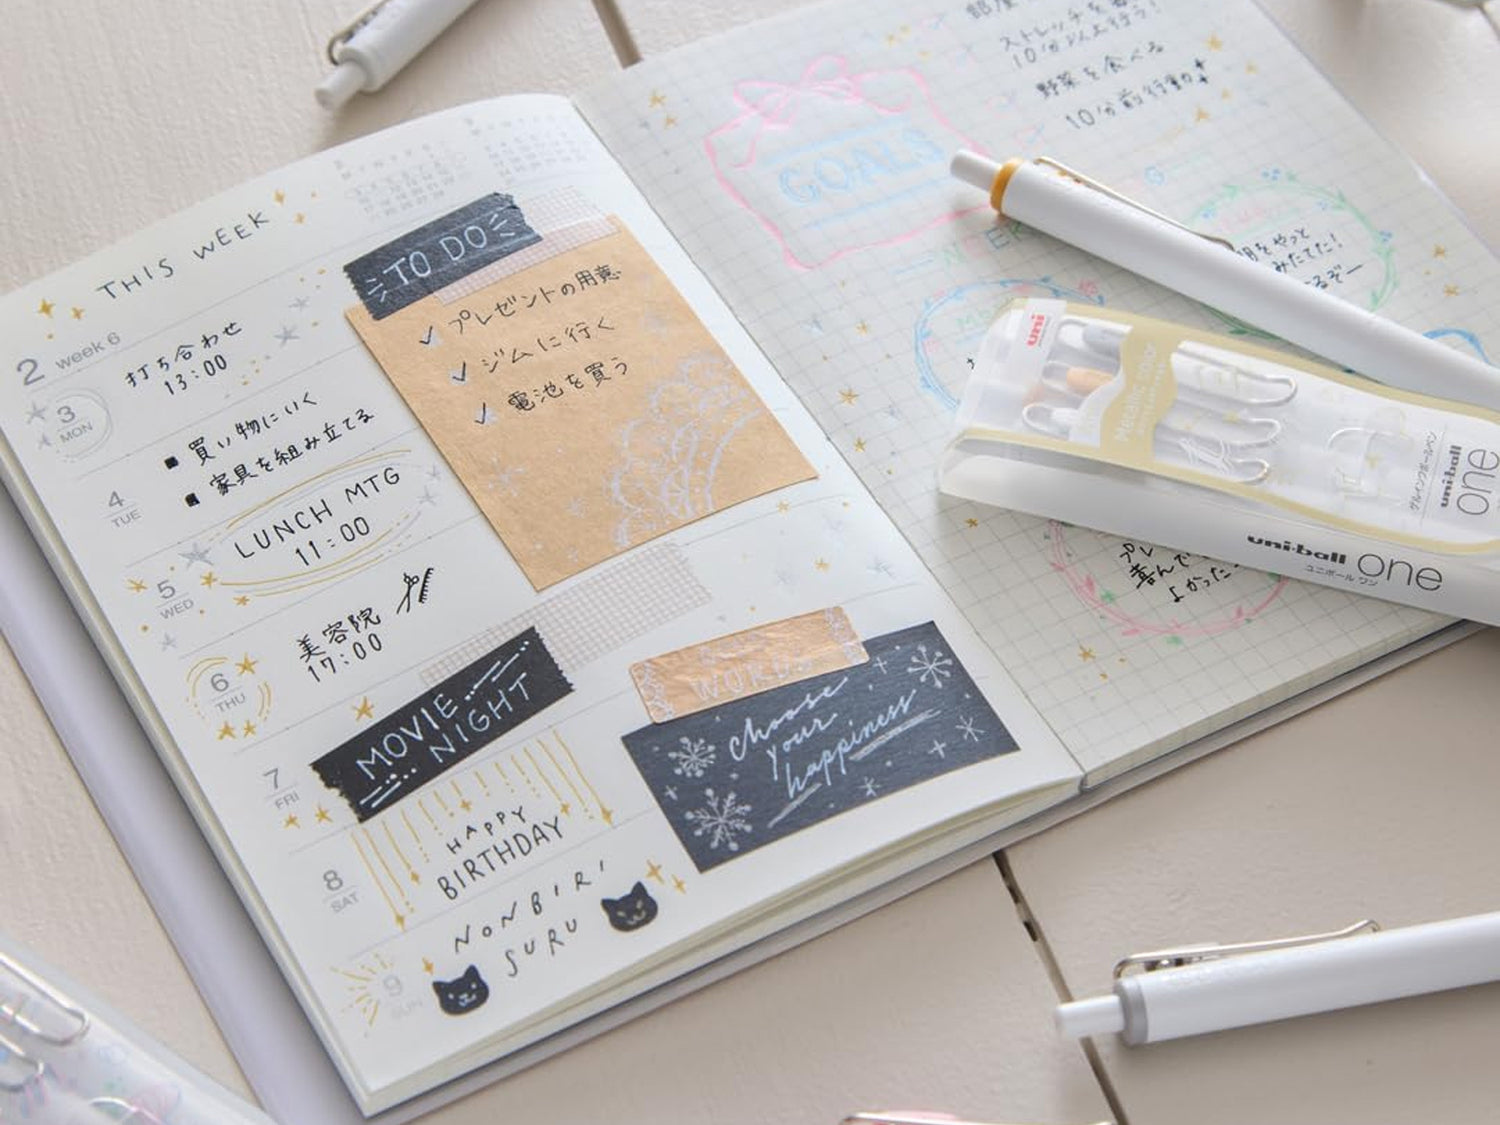 THIS WEEK
2 week 6
3
MON
打ち合わせ
13:00
4
TUE
■ 買い物にいく
■ 家具を組み立てる
5
WED
LUNCH MTG
11:00
6
THU
美容院
17:00
7
FRI
MOVIE
NIGHT
8
SAT
HAPPY
BIRTHDAY
9
SUN
NONBIRI
SURU
TO DO
✓ プレゼントの用意
✓ ジムに行く
✓ 電池を買う
WORDS
choose
your
happiness
ストレッチを
10分以上行う!
野菜を食べる
10分前行動
GOALS
WEEK
uni
Metallic color
ゲルインクボールペン
uni-ball
one
uni-ball one
ユニボール ワン
喜んで
よかった